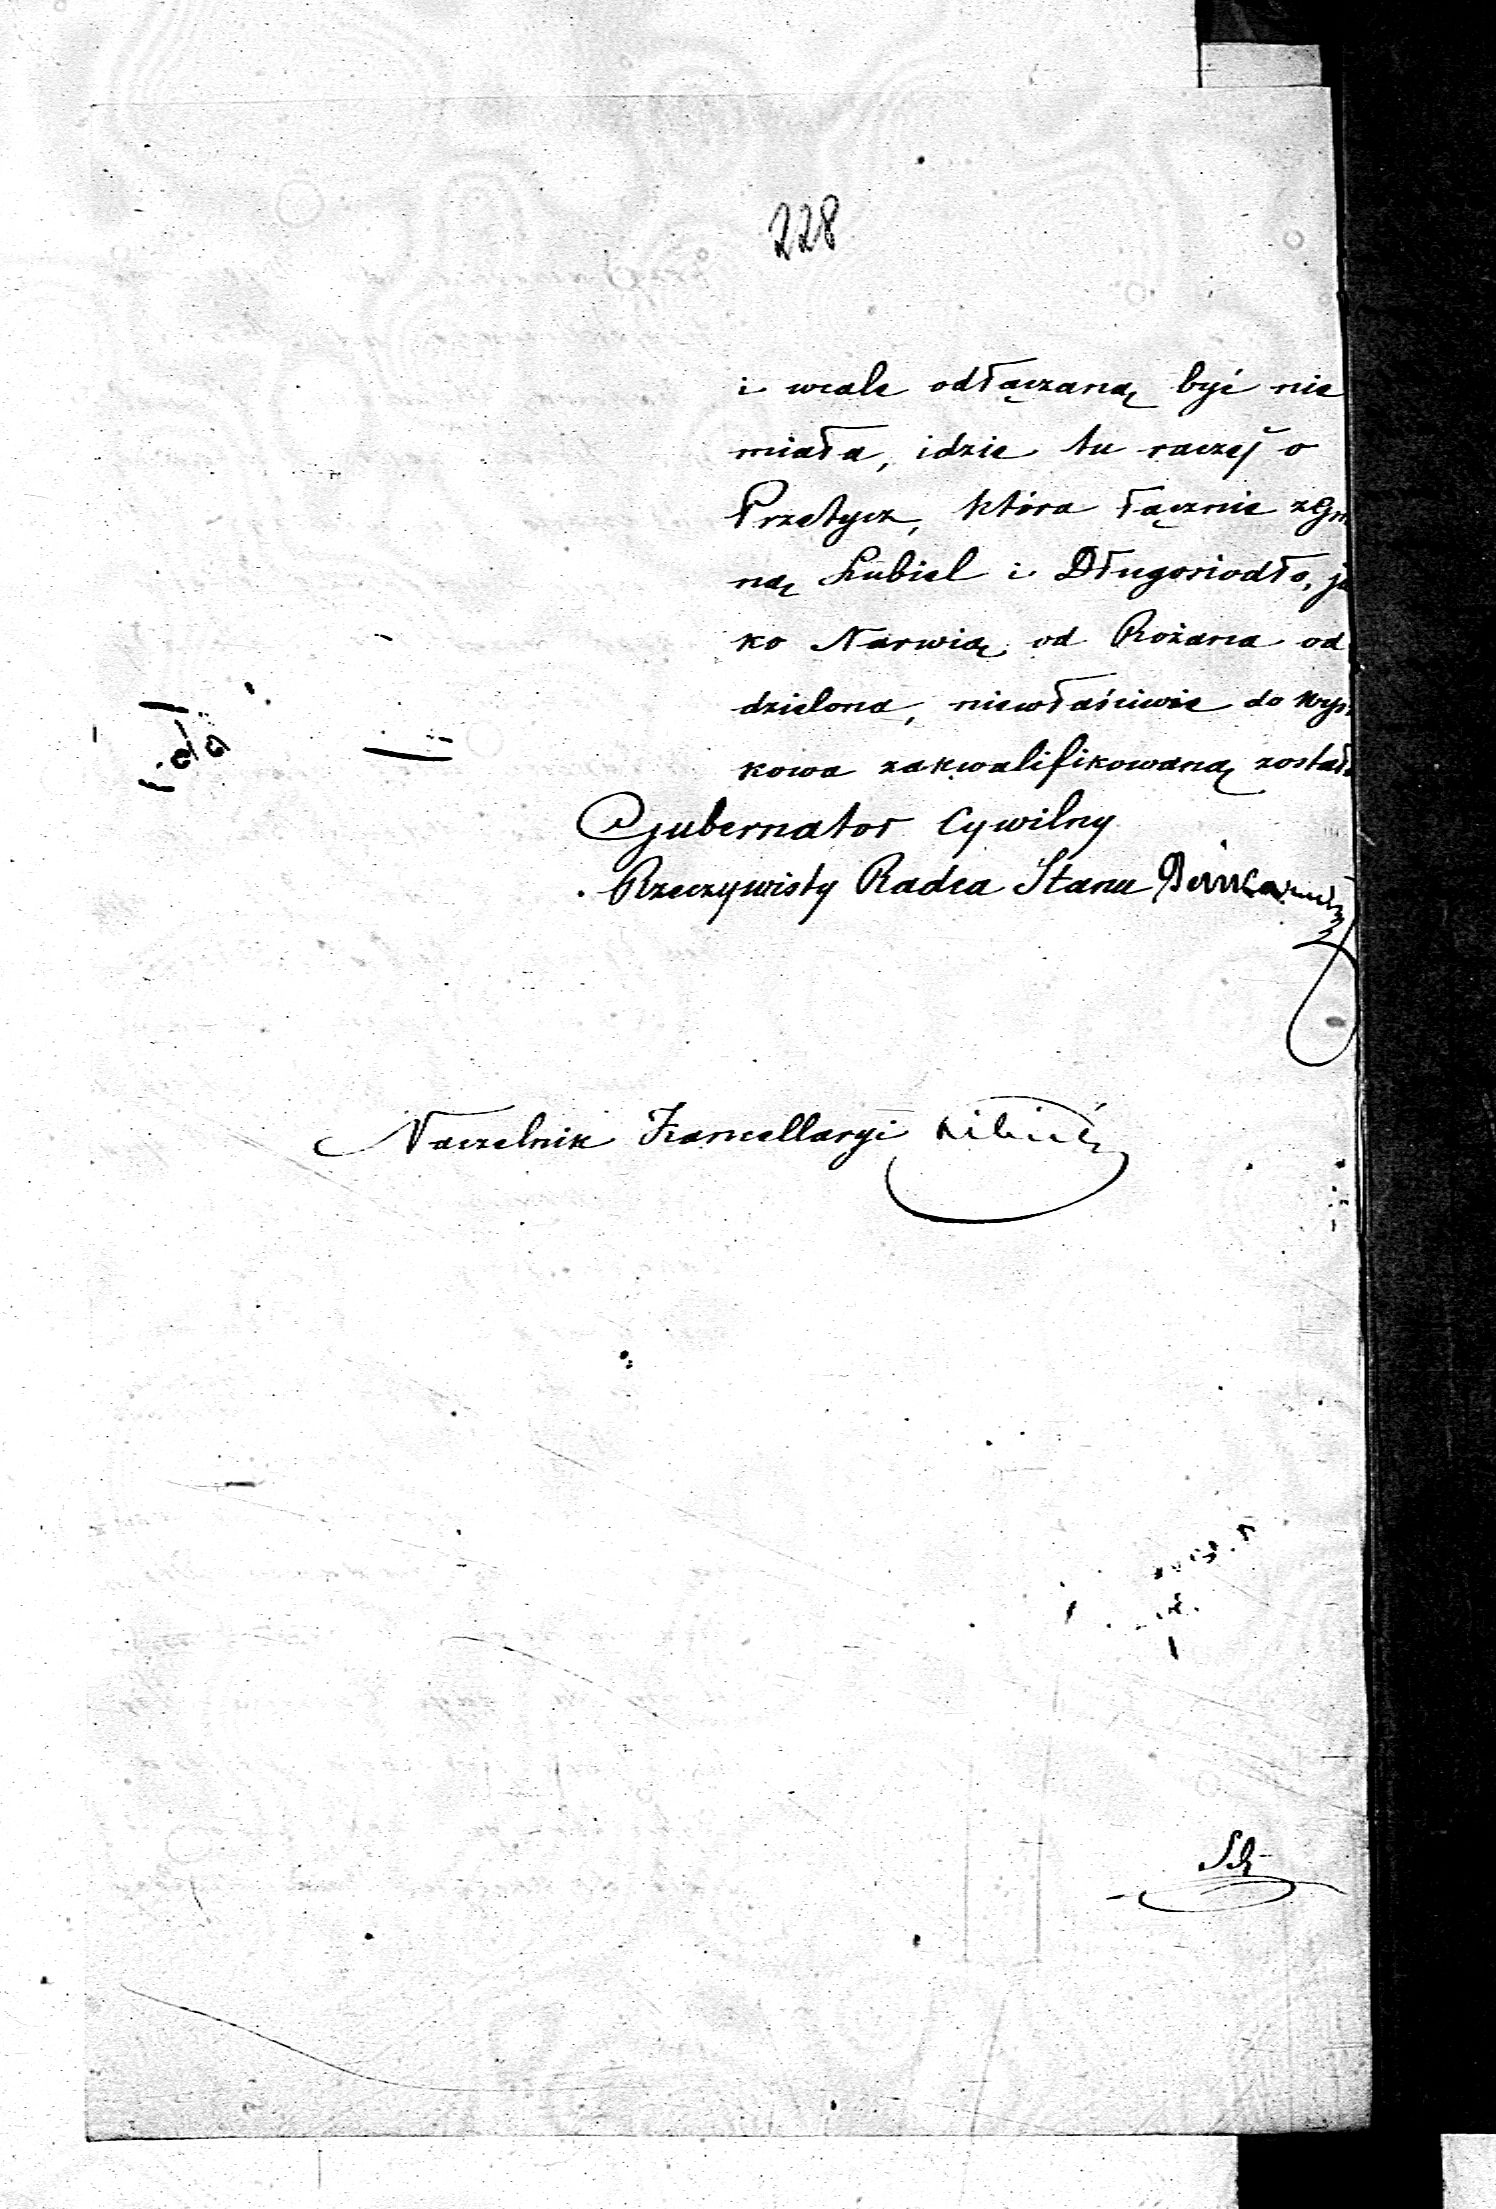 228
i wcale odłączaną być nie
miała, idzie tu raczej o
Przetycz, która łącznie z Gm
ną Lubiel i Długosiodło, ja
ko Narwią od Rożana od
dzielona, niewłaściwie do Wysz
kowa zakwalifikowaną został
Gubernator Cywilny
Rzeczywisty Radca Stanu
Naczelnik Kancellaryi